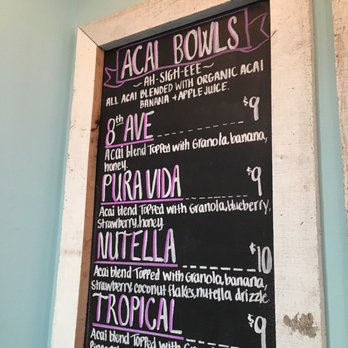 ACAI BOWLS
~AH-SIGH-EEE~
ALL ACAI BLENDED WITH ORGANIC ACAI
BANANA + APPLE JUICE.
8th AVE $9
Acai blend Topped with Granola, banana,
honey.
PURA VIDA $9
Acai blend Topped with Granola, blueberry,
Strawberry, honey.
NUTELLA $10
Acai blend Topped with Granola, banana,
Strawberry, coconut flakes, nutella drizzle
TROPICAL $9
Acai blend Topped with Granola,